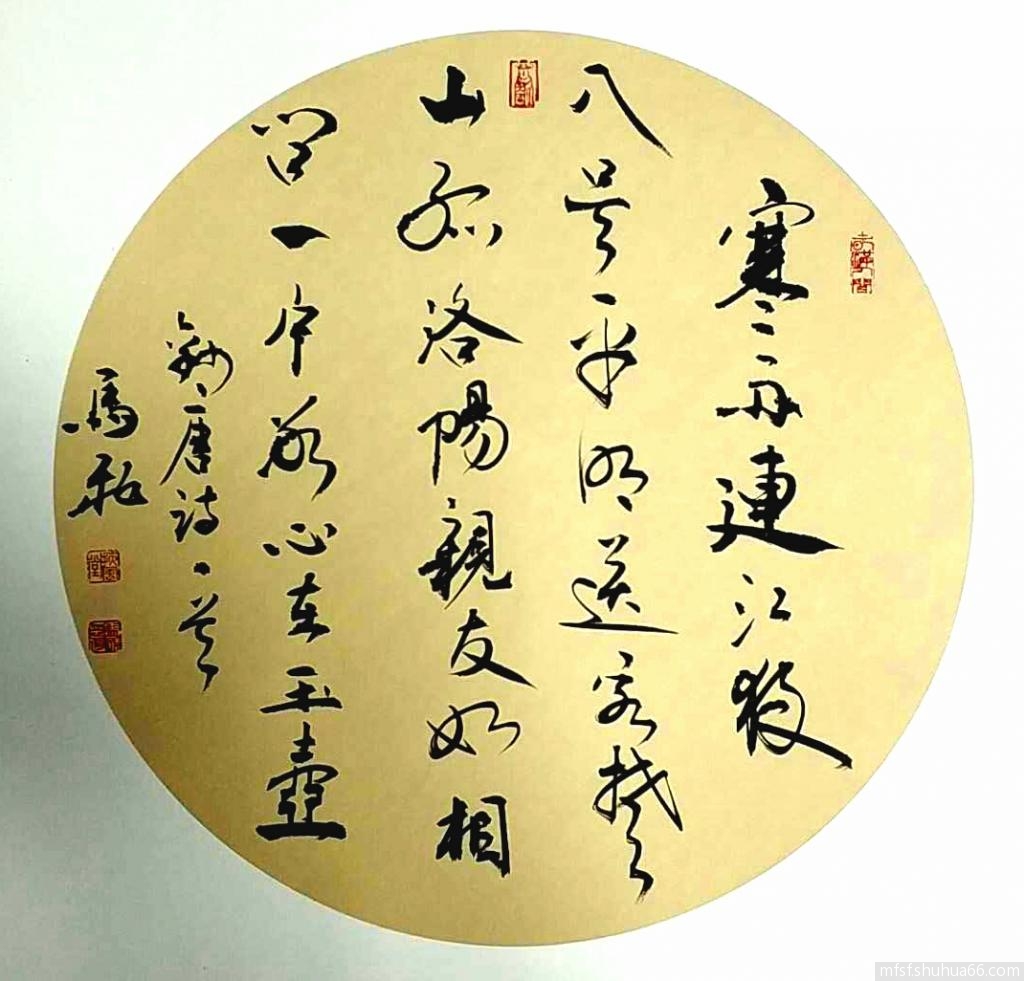 寒雨連江夜
入吴平明送客楚
山孤洛陽親友如相
問一片冰心在玉壺
錄唐詩一首
馬
mfsf.shuhua66.com